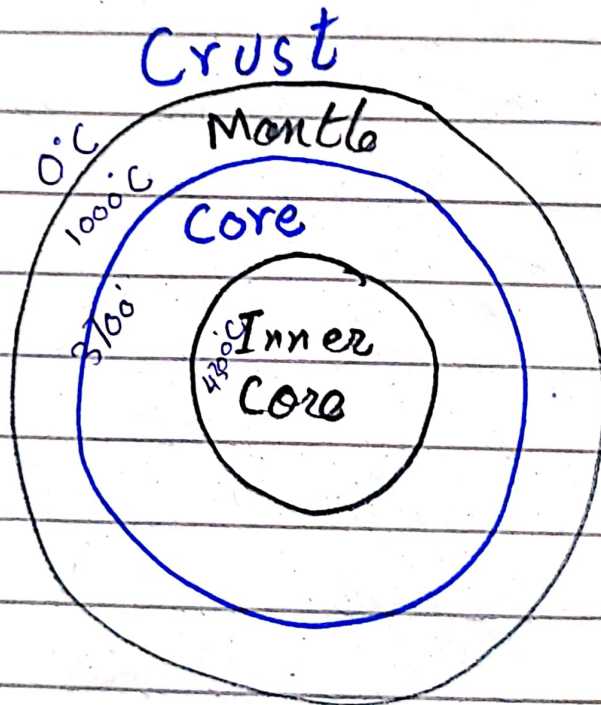 Crust
Mantle
0°C
1000°C
Core
3700°
4300°C
Inner
Core